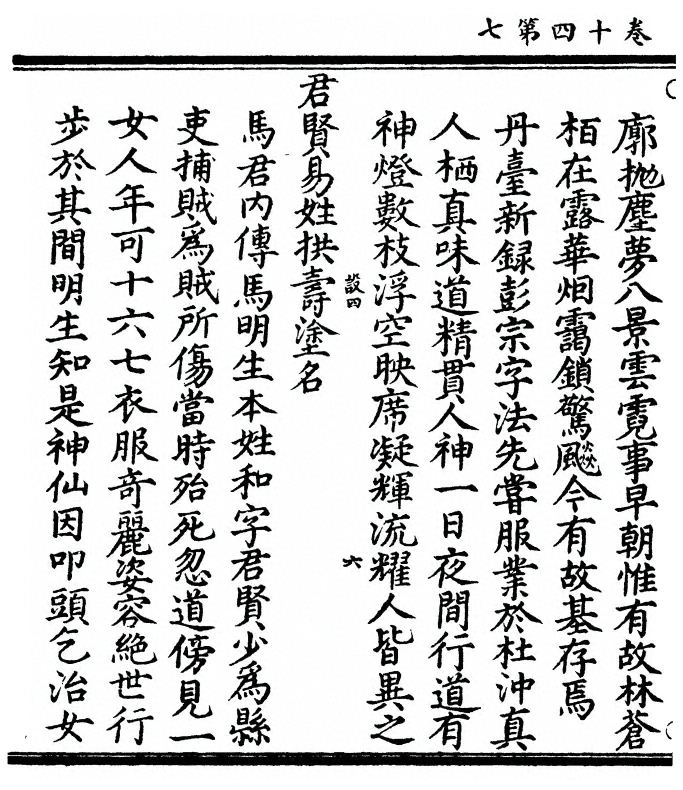 卷十四第七
廓抛塵夢八景雲霓事早朝惟有故林蒼
栢在露華烟靄鎖驚飈今有故基存焉
丹臺新録彭宗字法先嘗服業於杜沖真
人栖真味道精貫人神一日夜間行道有
神燈數枝浮空映席凝輝流耀人皆異之
設四
六
君賢易姓拱壽塗名
馬君內傳馬明生本姓和字君賢少爲縣
吏捕賊爲賊所傷當時殆死忽道傍見一
女人年可十六七衣服奇麗姿容絶世行
步於其間明生知是神仙因叩頭乞治女